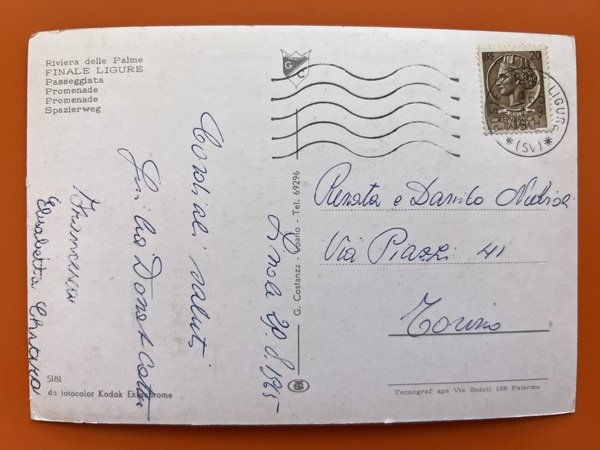 Riviera delle Palme
FINALE LIGURE
Passeggiata
Promenade
Promenade
Spazierweg
G C
20
LIGURE
*(SV)*
Cordiali saluti
Francesca
Elisabetta Chiara
29.8.1965
G. Costanza - Loano - Tel. 69296
Renata e Danilo
Via Piazzi 41
Torino
5181
da fotocolor Kodak Ektachrome
Tecnograf spa Via Sciuti 128 Palermo